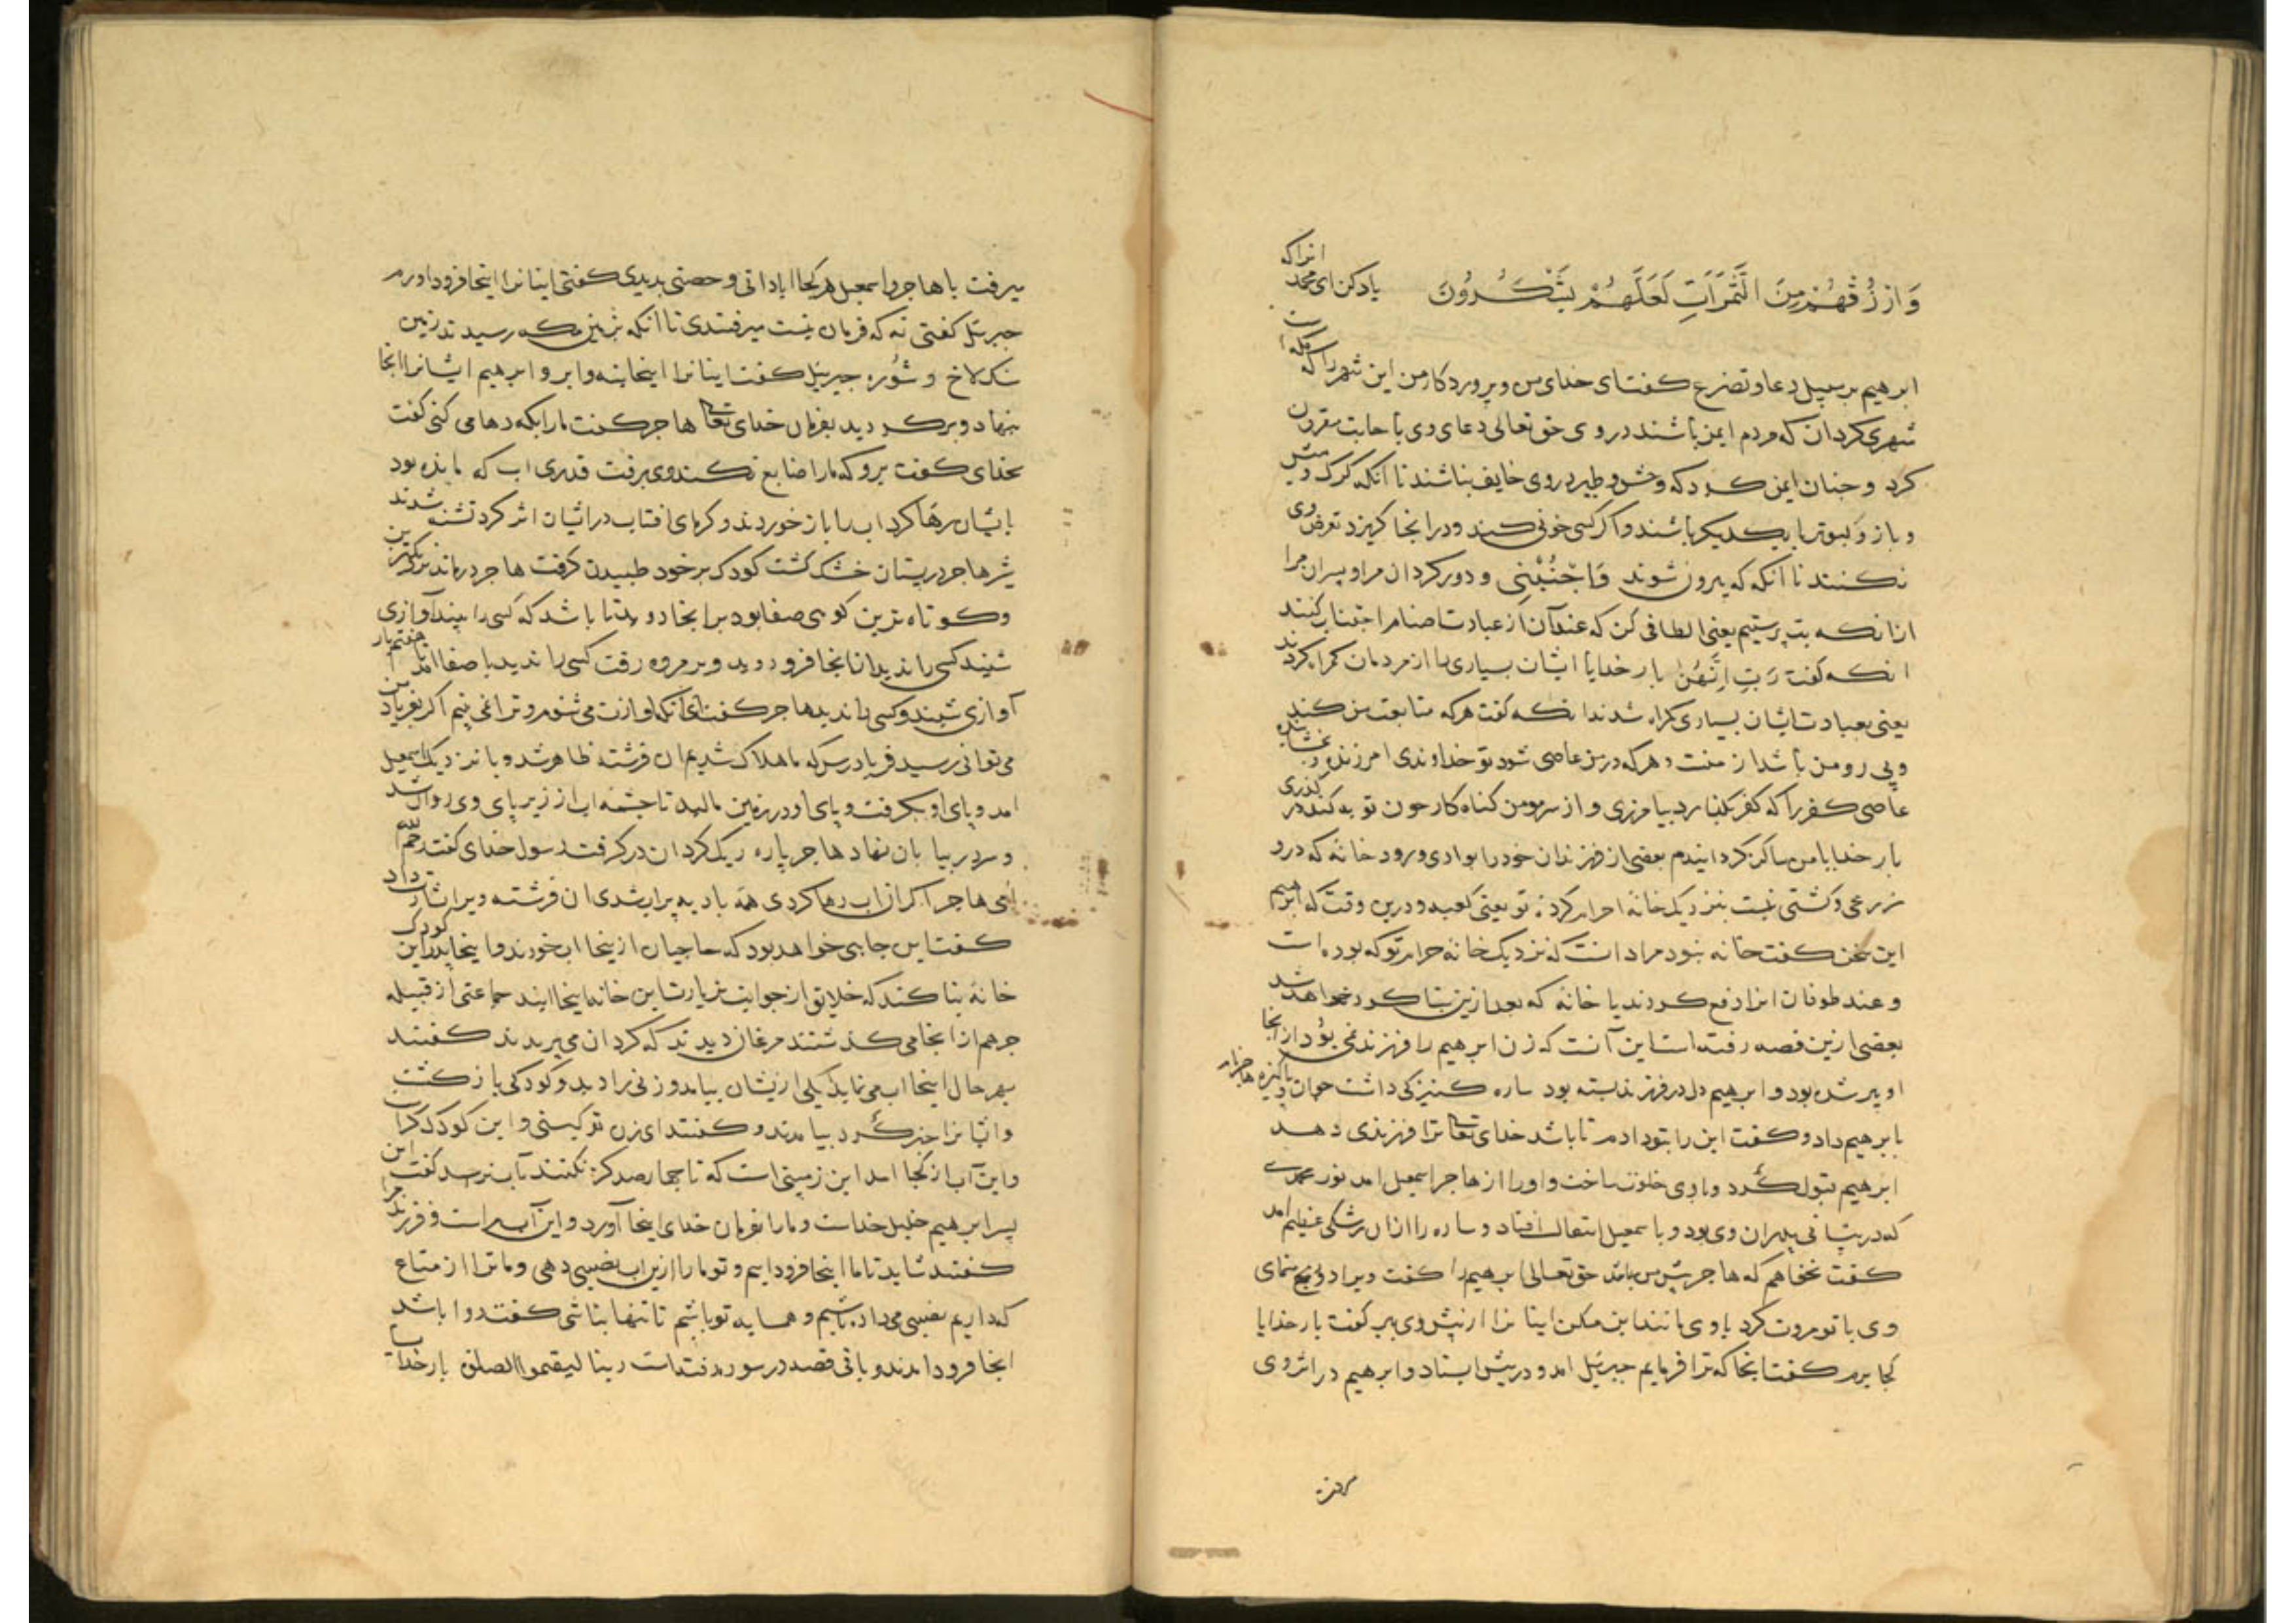 وَارْزُقْهُمْ مِنَ الثَّمَرَاتِ لَعَلَّهُمْ يَشْكُرُونَ یاد کن ای محمد انرا که
ابرهیم بر سبیل دعا و تضرع کفت ای خدای من و پروردکار من این شهر را که مکه است
شهری کردان که مردم ایمن باشند در وی حق تعالی دعای وی باجابت مقرون
کرد و جنان ایمن کرد که وحش و طیر در وی خایف نباشند تا انکه کرک و میش
و باز و کبوتر با یکدیکر باشند و اکر کسی خونی کند و در انجا کریزد تعرض وی
نکنند تا انکه که بیرون شوند وَاجْنُبْنِی و دور کردان مرا و پسران مرا
ازانکه بت پرستیم یعنی الطافی کن که عند آن از عبادت اصنام اجتناب کنند
انکه کفت رَبِّ اِنَّهُنَّ بار خدایا ایشان بسیاری را از مردمان کمراه کردند
یعنی بعبادت ایشان بسیاری کمراه شدند انکه کفت هرکه متابعت من کند
و پی رو من باشد از منست و هرکه در من عاصی شود تو خداوندی امرزنده و بخشاینده
عاصی کفر را که کفر بکذارد بیامرزی و از سر مومن کناه کار جون توبه کند در کذری
بار خدایا من ساکن کردانیدم بعضی از فرزندان خود را بوادی و رود خانه که درو
زرعی و کشتی نیست بنزدیک خانه احرام کرده تو یعنی کعبه و درین وقت که ابرهیم
این سخن کفت خانه نبود مراد انست که نزدیک خانه حرام تو که بوده است
و عند طوفان انرا رفع کردند یا خانه که بعد ازین بنا کرده خواهد شد
بعضی ازین قصه رفته است این آنست که زن ابرهیم را فرزند نمی بود از انجا
او پیر شده بود و ابرهیم دل در فرزند بسته بود ساره کنیزکی داشت جوان و پاکیزه هاجر نام
بابرهیم داد و کفت این را بتو دادم تا باشد خدای تعالی ترا فرزندی دهد
ابرهیم قبول کرد و با وی خلوت ساخت و او را از هاجر اسمعیل امد نور محمدی
که در پیشانی پدران وی بود و با سمعیل انتقال افتاد و ساره را ازان رشکی عظیم امد
کفت نخواهم که هاجر پیش من باشد حق تعالی ابرهیم را کفت ویرا دل رنج منمای
وی با تو مروت کرد با وی مانند این مکن اینانرا از پیش وی ببر کفت بار خدایا
کجا برم کفت انجا که ترا فرمایم جبرئیل امد و در پیش ایستاد و ابرهیم در اثر وی
میرفت با هاجر و اسمعیل هر کجا ابادانی و حصنی بدیدی کفتی اینانرا اینجا فرود اورم
جبرئیل کفتی نه که فرمان نیست میرفتندی تا انکه بزمین مکه رسیدند زمین
سنکلاخ و شوره جبریئل کفت اینانرا اینجا بنه و ابر و ابرهیم ایشانرا انجا
بنهاد و برکردید بفرمان خدای تعالی هاجر کفت مارا بکه رها می کنی کفت
بخدای کفت برو که مارا ضایع نکند وی برفت قدری اب که مانده بود
بایشان رها کرد اب را باز خوردند و کرمای افتاب در ایشان اثر کرد تشنه شدند
شیر هاجر در پستان خشک کشت کودک بر خود طبیدن کرفت هاجر درماند بنزدیکترین
و کوتاه ترین کوهی صفا بود بر انجا دوید تا باشد که کسی را بیند آوازی
شنید کسی را ندید ازانجا فرو دوید و بر مروه رفت کسی را ندید با صفا امد تا هفتم بار
آوازی شنید و کسی را ندید هاجر کفت ای انکه اوازت می شنوم و ترا نمی بینم اکر بفریاد من
می توانی رسید فریاد رس که ما هلاک شدیم ان فرشته ظاهر شد و با نزدیک اسمعیل
امد و پای او بکرفت و پای او در زمین مالید تا جشمه اب از زیر پای وی روان شد
و سر در بیابان نهاد هاجر پاره ریک کردان درکرفت رسول خدای کفت رحم الله
امی هاجر اکر ان اب رها کردی همه بادیه پر اب شدی ان فرشته ویرا بشارت داد
کفت این جایی خواهد بود که حاجیان ازینجا اب خورند و اینجا پدر این کودک
خانه بنا کند که خلایق از جوانب بزیارت این خانه اینجا ایند جماعتی از قبیله
جرهم ازانجا می کذشتند مرغان دیدند که کردان می پریدند کفتند
بهر حال اینجا اب می نماید یکی ازیشان بیامد و زنی را دید و کودکی باز کشت
و ایشانرا خبر کرد بیامدند و کفتند ای زن تو کیستی و این کودک کراست
و این آب از کجا امد این زمینی است که تا جها رصد کز نکنند بآب نرسد کفت این
پسر ابرهیم خلیل خداست و مارا بفرمان خدای اینجا آورد و این آب مراست و فرزند مرا
کفتند شاید تا ما اینجا فرود اییم و تو مارا ازین اب نصیبی دهی و ما ترا از متاع
که داریم نصیبی می داده باشیم و همسایه تو باشیم تا تنها نباشی کفت روا باشد
انجا فرود امدند و باقی قصه در سوره رفته است ربنا لیقیموا الصلوة بار خدایا